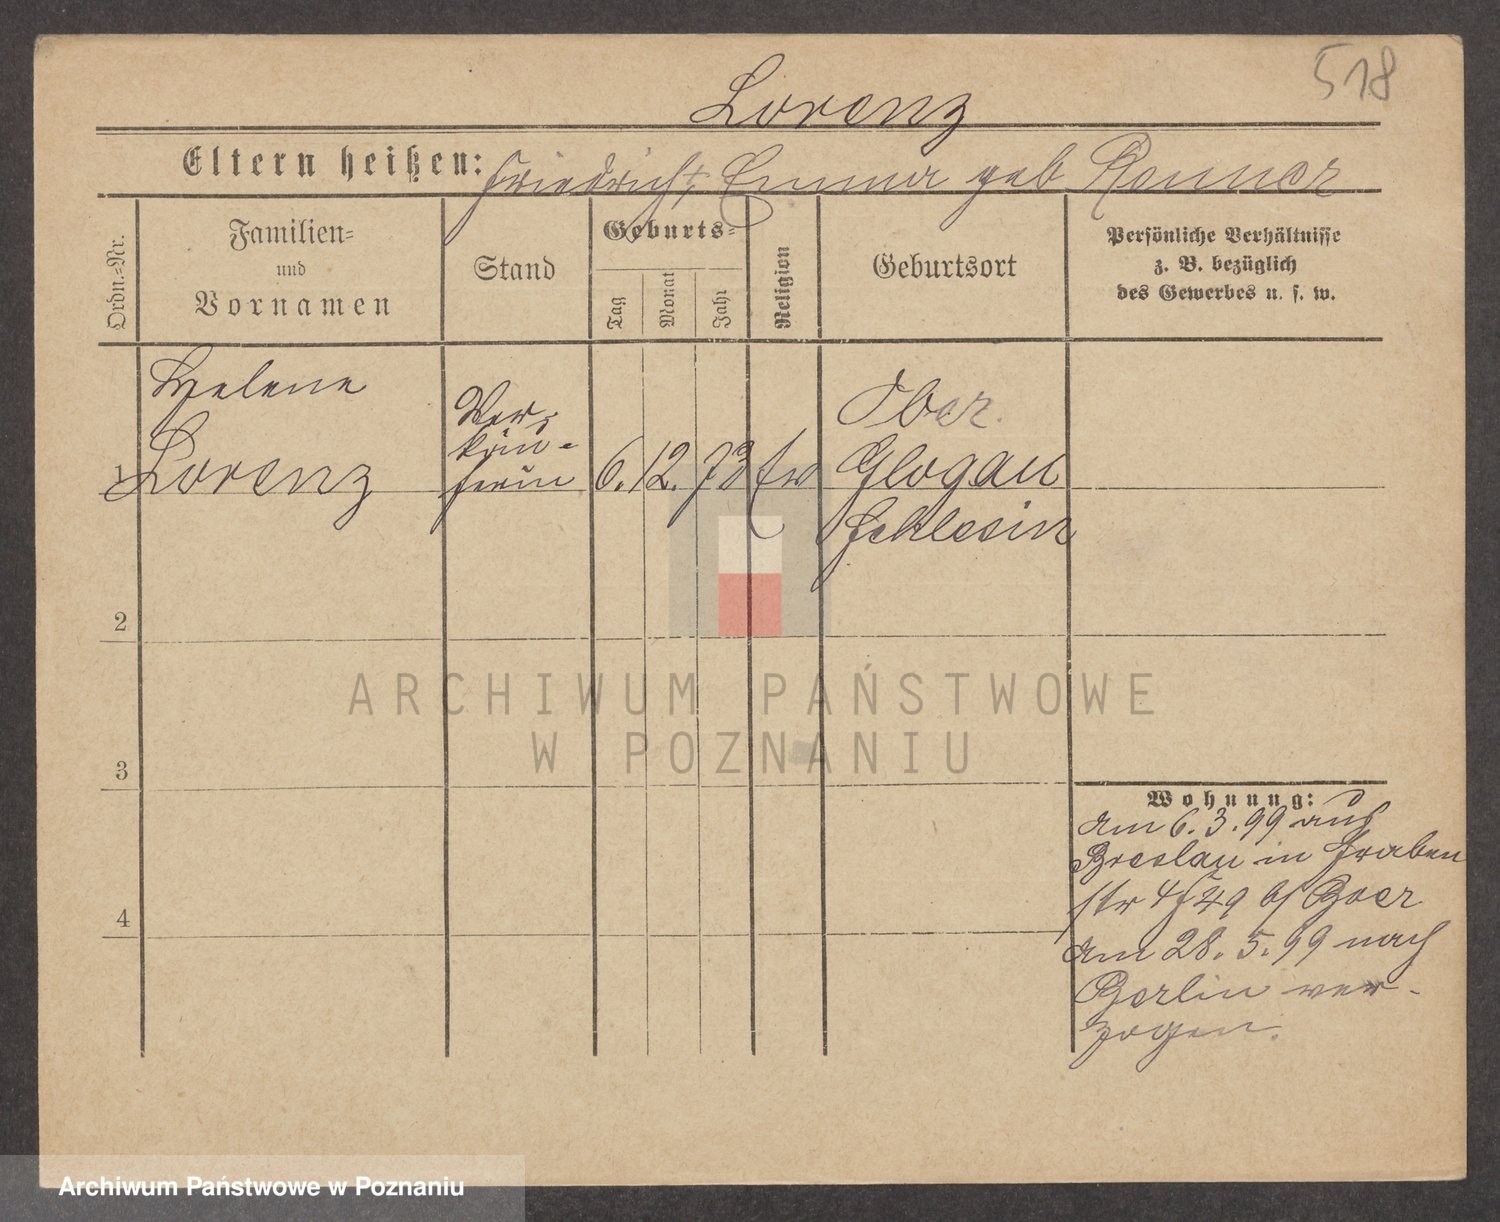 518
Lorenz
Eltern heißen: Friedrich, Emma geb Renner
Ordn.-Nr.
Familien-
und
Vornamen
Stand
Geburts-
Tag
Monat
Jahr
Religion
Geburtsort
Persönliche Verhältnisse
z. B. bezüglich
des Gewerbes u. s. w.
Helene
1 Lorenz
Ver-
käu-
ferin
6. 12. 73 Ev
Ober
Glogau
Schlesin
2
3
4
Wohnung:
Am 6.3.99 aus
Breslau in Graben
str 49 b/ Baer
Am 28.5.99 nach
Berlin ver-
zogen.
ARCHIWUM PAŃSTWOWE
W POZNANIU
Archiwum Państwowe w Poznaniu